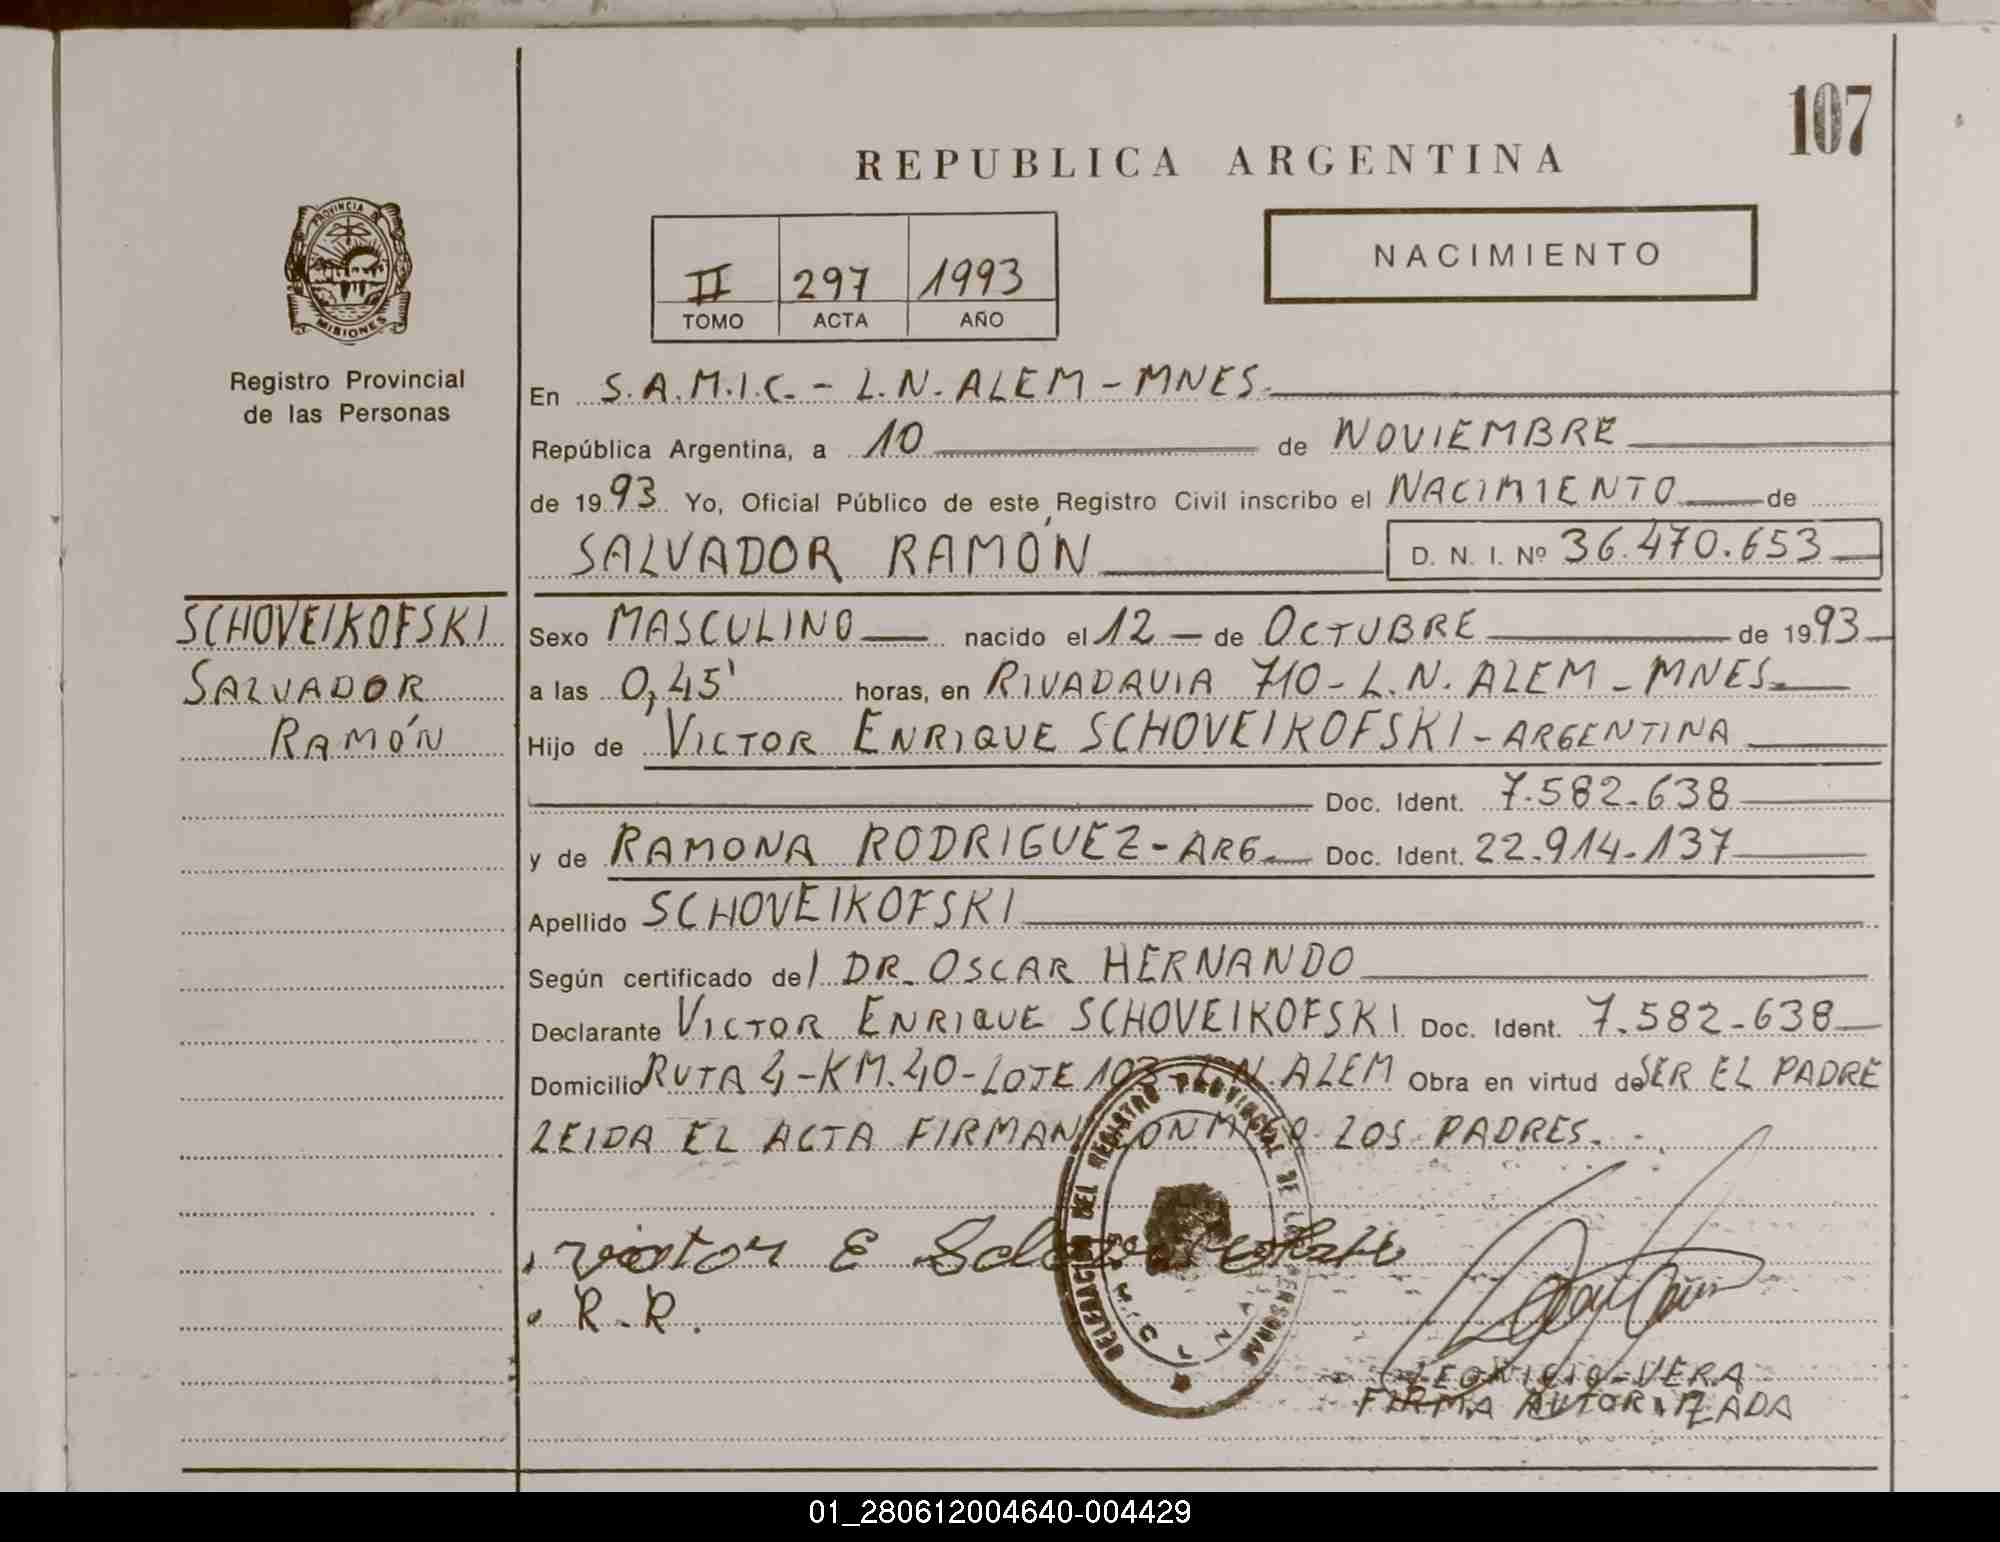 107
REPUBLICA ARGENTINA
NACIMIENTO
II 297 1993
TOMO ACTA AÑO
PROVINCIA DE
MISIONES
Registro Provincial
de las Personas
En S.A.M.I.C. - L.N. ALEM - MNES.
República Argentina, a 10 de NOVIEMBRE
de 1993 Yo, Oficial Público de este Registro Civil inscribo el NACIMIENTO de
SALVADOR RAMÓN D. N. I. Nº 36.470.653
SCHOVEIKOFSKI
SALVADOR
RAMÓN
Sexo MASCULINO nacido el 12 de OCTUBRE de 1993
a las 0,45' horas, en RIVADAVIA 710 - L.N. ALEM - MNES.
Hijo de VICTOR ENRIQUE SCHOVEIKOFSKI - ARGENTINA
Doc. Ident. 7.582.638
y de RAMONA RODRIGUEZ - ARG. Doc. Ident. 22.914.137
Apellido SCHOVEIKOFSKI
Según certificado del DR. OSCAR HERNANDO
Declarante VICTOR ENRIQUE SCHOVEIKOFSKI Doc. Ident. 7.582.638
Domicilio RUTA 4 - KM. 40 - LOTE 103 - L.N. ALEM Obra en virtud de SER EL PADRE
LEIDA EL ACTA FIRMAN CONMIGO LOS PADRES.
DELEGACION DEL REGISTRO PROVINCIAL DE LAS PERSONAS
victor E
R.R.
VERA
FIRMA AUTORIZADA
01_280612004640-004429